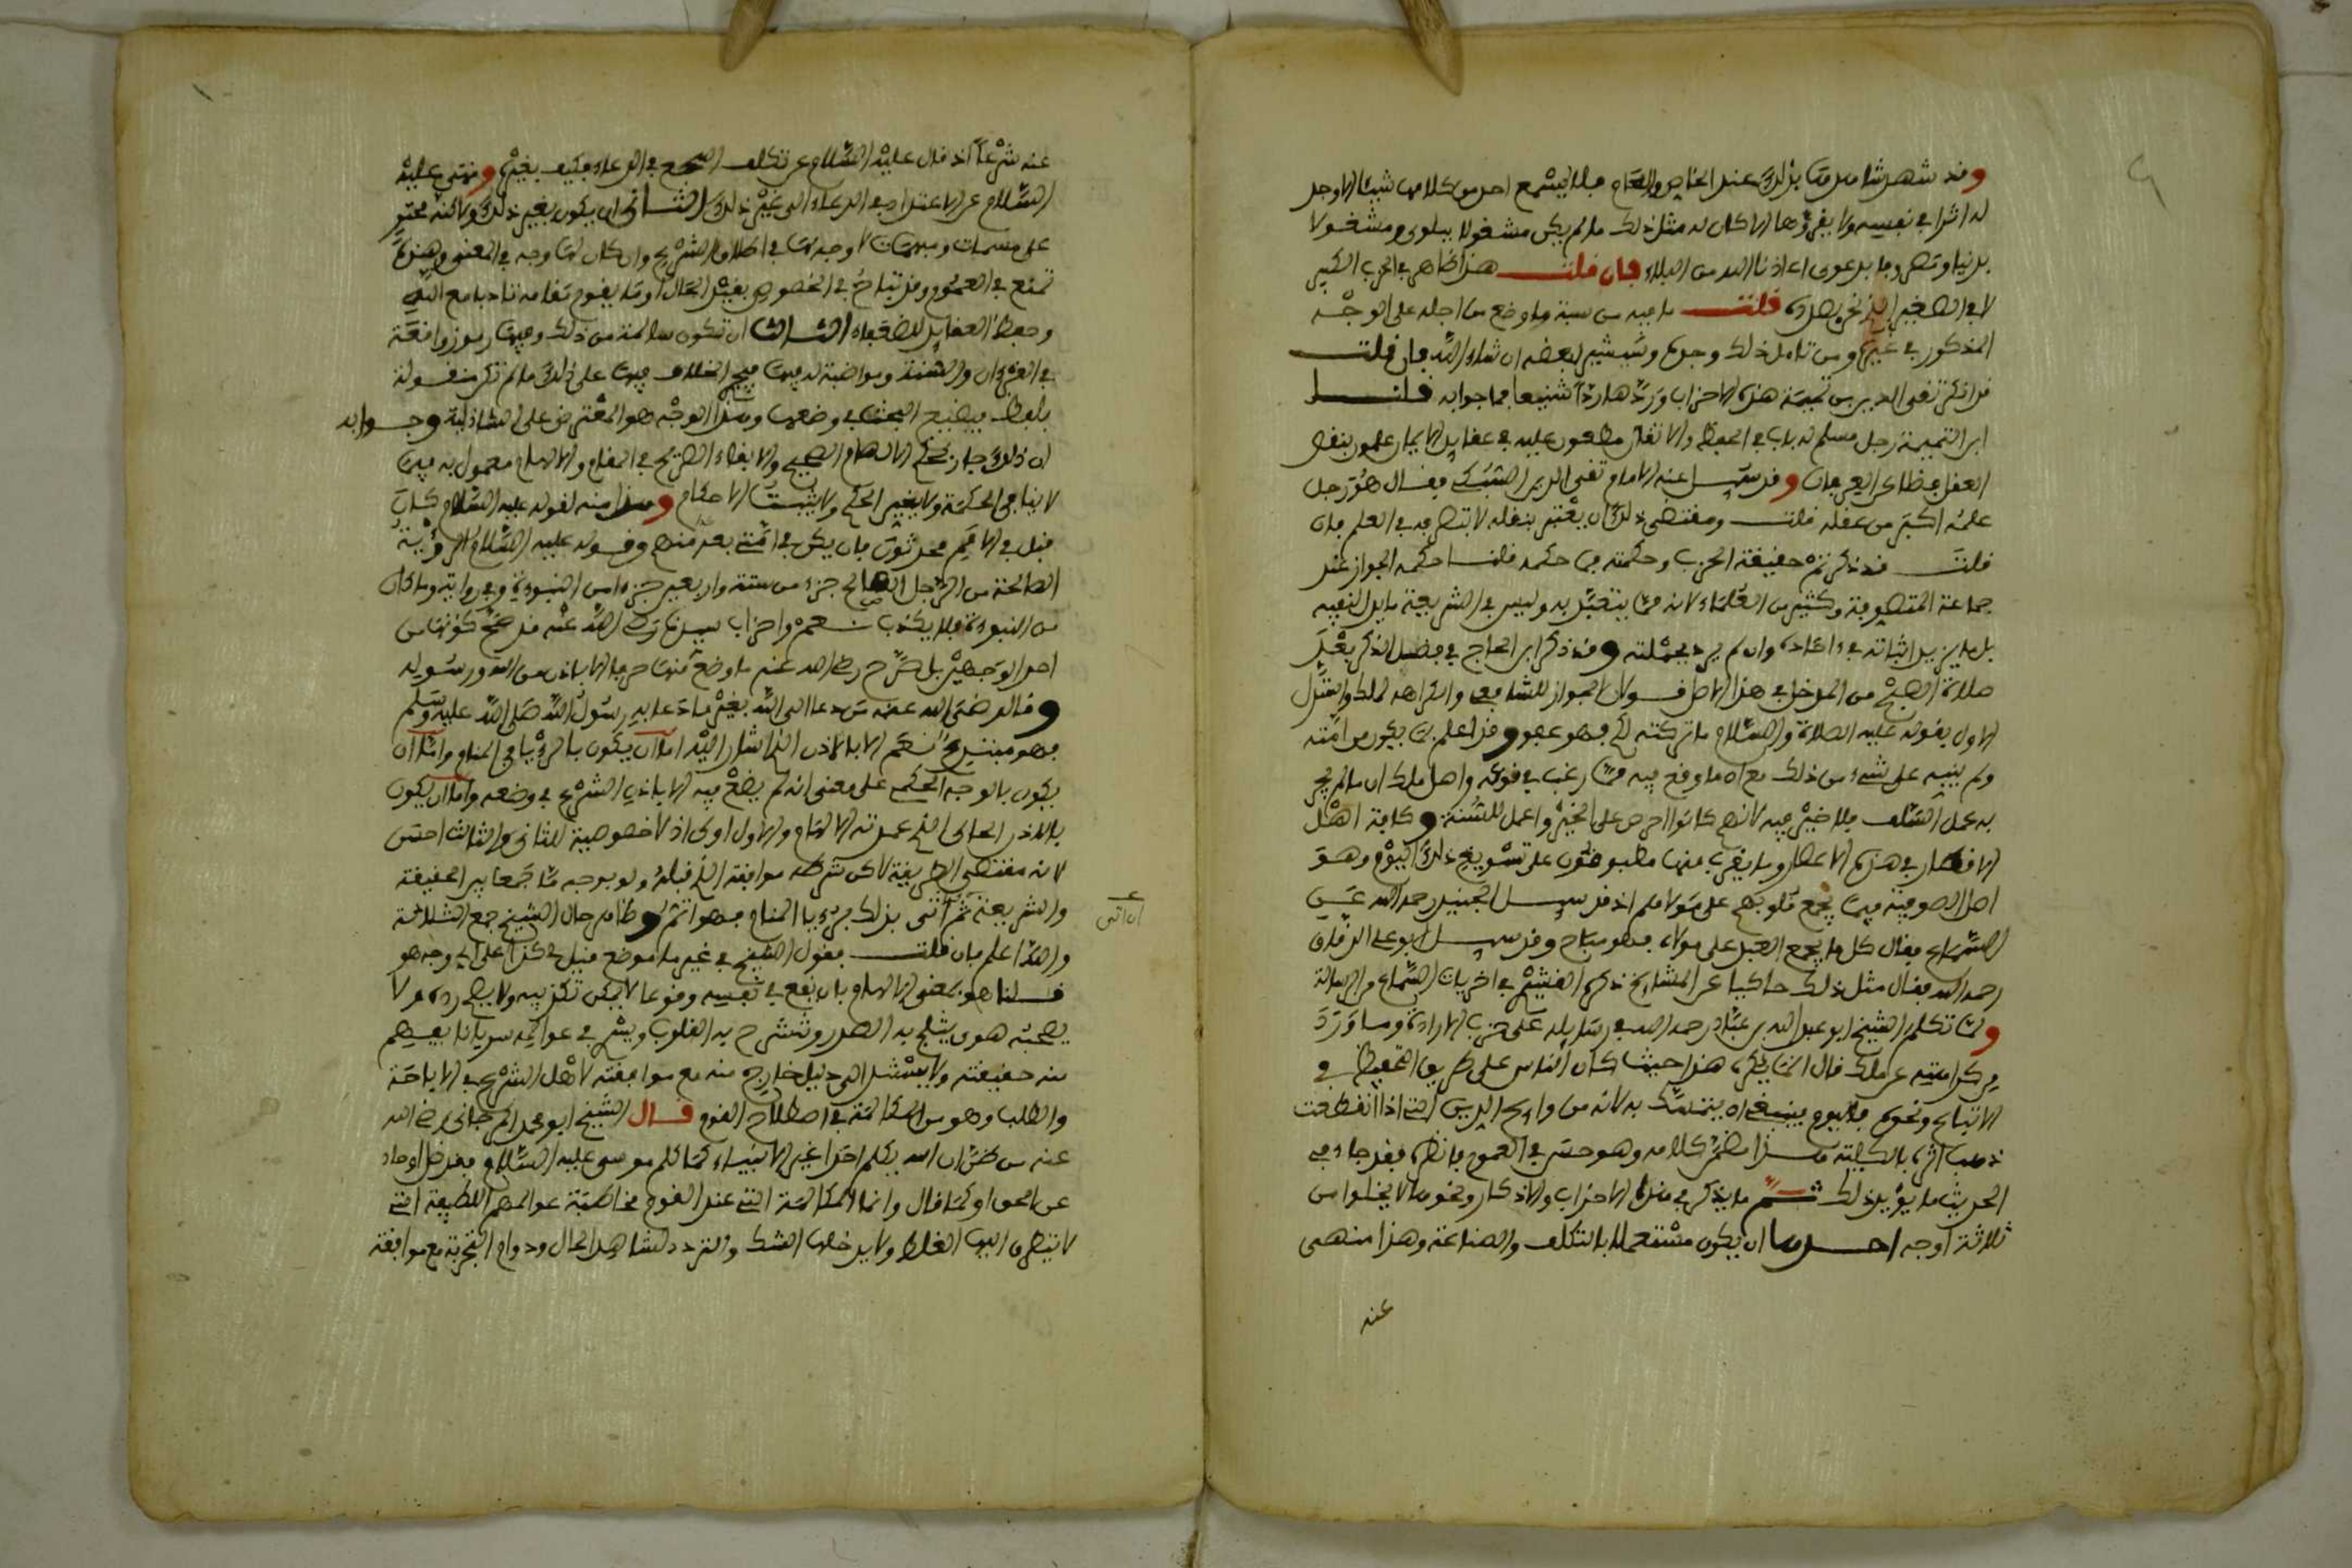 وقد شهد شاهدها بذلك عند الخاص والعام فلا يسمع احد من كلامها شيئا الا وجد
له اثرا في نفسه ولا يقرؤها الا كان له مثل ذلك ما لم يكن مشغولا ببلوى ومشغولا
بدنيا او بدعوى اعاذنا الله من البلاء فان قلت هذا ظاهر في الحزب الكبير
لا في الصغير الذي نحن بصدده قلت ما فيه من سبة ما وضع من اجله على الوجه
المذكور في غيره ومن تامل ذلك وجده وسنشير لبعضه ان شاء الله فان قلت
قد انكر تقي الدين بن تيمية هذه الاحزاب وردها ردا شنيعا فما جوابه قلنا
ابن التيمية رجل مسلم له باب في الحفظ والاتقان مطعون عليه في عقايد الايمان ملموز بنقص
العقل فضلا عن العرفان وقد سيل عنه الامام تقي الدين السبكي فقال هو رجل
علمه اكبر من عقله قلت ومقتضى ذلك ان يعتبر بنقله لا بتصرفه في العلم فان
قلت قد ذكرتم حقيقة الحزب وحكمته فما حكمه قلنا حكمه الجواز عند
جماعة المتصوفة وكثير من العلماء لانه مما يتعبد به وليس في الشريعة ما يدل لنفيه
بل ما يزيد اثباته في احاده وان لم يرد بجملته وقد ذكر ابن الحاج في فضل الذكر بعد
صلاة الصبح من المدخل في هذا الاصل قولان الجواز للشافعي والكراهة لمالك واستدل
الاول بقوله عليه الصلاة والسلام ما تركته لكم فهو عفو وقد اعلم بما يكون من امته
ولم ينبه على شيء من ذلك مع اه ما وقع فيه مما رغب في قوله واصل مالك ان ما لم يجر
به عمل السلف فلا خير فيه لانهم كانوا احرص على الخير واعمل للسنة وكافة اهل
الاقطار في هذه الاعصار وما يقرب منها مطبوعون على تسويغ ذلك اليوم وهو
اصل الصوفية فيما يجمع قلوبهم على مولاهم اذ قد سيل الجنيد رحمه الله عن
السماع فقال كل ما يجمع العبد على مولاه فهو مباح وقد سيل ابو علي الدقاق
رحمه الله فقال مثل ذلك حاكيا عن المشايخ ذكره القشيري في اخر باب السماع من الرسالة
ولما تكلم الشيخ ابو عبد الله بن عباد رحمه الله في رسايله على حزب الارادة وما ورد
من كراهيته عن مالك قال انما يكره هذا حيثما كان الناس على طريق التحفظ في
الاتباع ونحوه فاليوم ينبغي ان يتمسك به لانه من روايح الدين التي اذا انقطعت
ذهب اثره بالكلية هذا مضمن كلامه وهو حسن في العموم فانظره فقد جاء في
الحديث ما يؤيد ذلك ثم ما يذكر في هذه الاحزاب والاذكار ونحوها لا يخلوا من
ثلاثة اوجه احدها ان يكون مستعملا بالتكلف والصناعة وهذا منهى
عنه
عنه شرعا اذ قال عليه السلام عن تكلف السجع في الدعاء فكيف بغيره ونهى عليه
السلام عن الاعتداء في الدعاء الى غير ذلك الثاني ان يكون بغير ذلك ولاكنه محتو
على مسميات ومبهمات لا وجه لها في اطلاق الشرع وان كان لها وجه في المعنى وهذه
تمنع في العموم وقد تباح في الخصوص بقيد الحال او ما يقوم مقامه تادبا مع الله
وحفظا لعقايد الضعفاء الثالث ان تكون سالمة من ذلك وفيها رموز واقعة
في القرءان والسنة ومواضيع له فيها فيجري الخلاف فيها على ذلك ما لم تكن منقولة
بلفظ فيضيع البحث في وضعها وهذا الوجه هو المعترض على الشاذلية وجوابه
ان ذلك جار بحكم الالهام الصحيح والالقاء الصريح في المنام والالهام معمول به فيما
لا ينافي الحكمة ولا يغير الحكم ولا يثبت الاحكام وهذا منه لقوله عليه السلام كان
قبل في الامم محدثون فان يكن في امتي بعد فعمر منهم وقوله عليه السلام الرؤية
الصالحة من الرجل الصالح جزء من ستة واربعين جزءا من النبوءة وفي رواية وما كان
من النبوءة فلا يكذب نعم واحزاب سيدنا رضي الله عنه قد صح كونها من
احد الوجهين بل صرح رضي الله عنه ما وضع منها حرفا الا باذن من الله ورسوله
وقال رضي الله عنه من دعا الى الله بغير ما دعا به رسول الله صلى الله عليه وسلم
فهو مبتدع نعم الا بالاذن الذي اشار اليه اما ان يكون بالرؤيا في المنام واما ان
يكون بالوجه الحكمي على معنى انه لم يضع فيه الا باذن الشرع في وضعه واما ان يكون
بالاذن الحالي الذي عمدته الالهام والاول اولى اذ لا خصوصية للثاني والثالث احسن
لانه مقتضى الطريقة لاكن شرطه موافقة الذي قبله ولو بوجه ما جمعا بين الحقيقة
والشريعة ثم ان اتى بذلك مرءيا المنام فهو اتم وظاهر حال الشيخ جمع الثلاثة
ان اتى
والله اعلم فان قلت بقول الشيخ في غير ما موضع قيل لي كذا على اي وجه هو
قلنا هو بمعنى الالهام بان يقع في نفسه وقوعا لا يمكن تكذيبه ولا يصح رده ولا
يصحبه هوى يثلج به الصدر وتنشرح به القلوب ويسري في عوالمه سريانا يفهم
منه حقيقته ولا يستند الى دليل خارج منه مع موافقته لاصل الشرع في الاباحة
والطلب وهو من المكالمة في اصطلاح القوم قال الشيخ ابو محمد المرجاني رضي الله
عنه من ظن ان الله يكلم احدا غير الانبياء كما كلم موسى عليه السلام فقد ضل وحاد
عن الحق او كما قال وانما المكالمة التي عند القوم مخاطبة عوالمهم اللطيفة التي
لا يتطرق اليها الغلط ولا يدخلها الشك والتردد لشاهد الحال ودوام التجربة مع موافقة